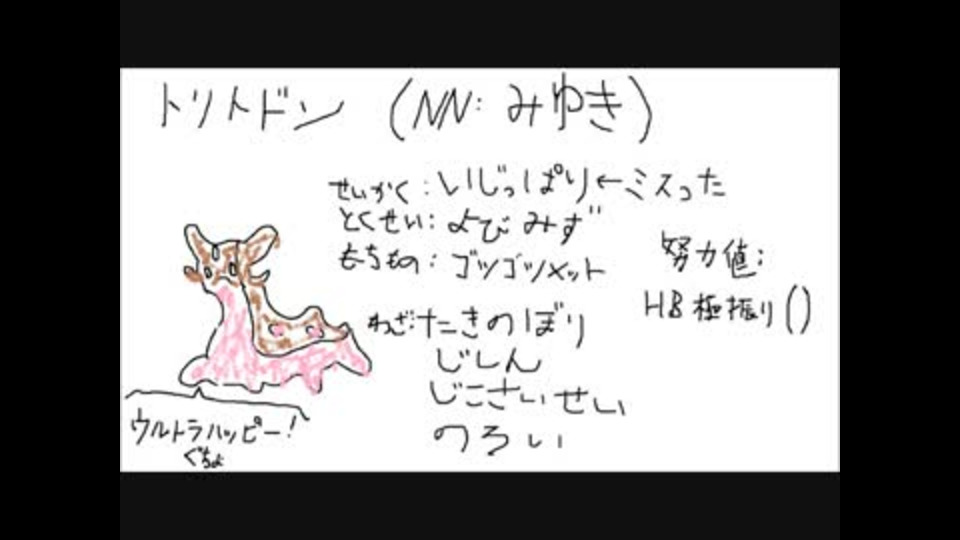 トリトドン (NN: みゆき)
せいかく:いじっぱり←ミスった
とくせい:よびみず
もちもの:ゴツゴツメット
努力値:
HB極振り()
わざ:たきのぼり
じしん
じこさいせい
のろい
ウルトラハッピー!
ぐちょ